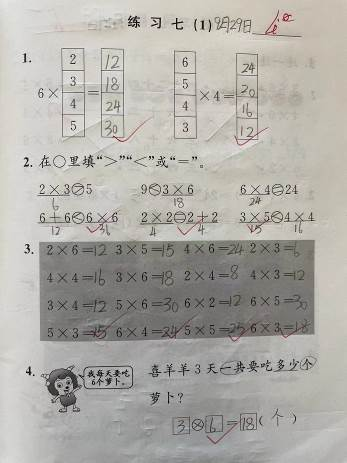 练 习 七 (1) 9月29日
1.
6× 2 3 4 5 = 12 18 24 30
6 5 4 3 ×4= 24 20 16 12
2. 在○里填“>”“<”或“=”。
2×3>5 9<3×6 6×4=24
6 18 24
6+6<6×6 2×2=2+2 3×5<4×4
12 36 4 4 15 16
3. 2×6=12 3×5=15 4×6=24 2×3=6
4×4=16 3×6=18 2×4=8 4×3=12
3×4=12 5×6=30 6×2=12 6×5=30
5×3=15 6×4=24 5×5=25 6×3=18
4. 我每天要吃6个萝卜。
喜羊羊 3 天一共要吃多少个
萝卜?
3×6=18(个)